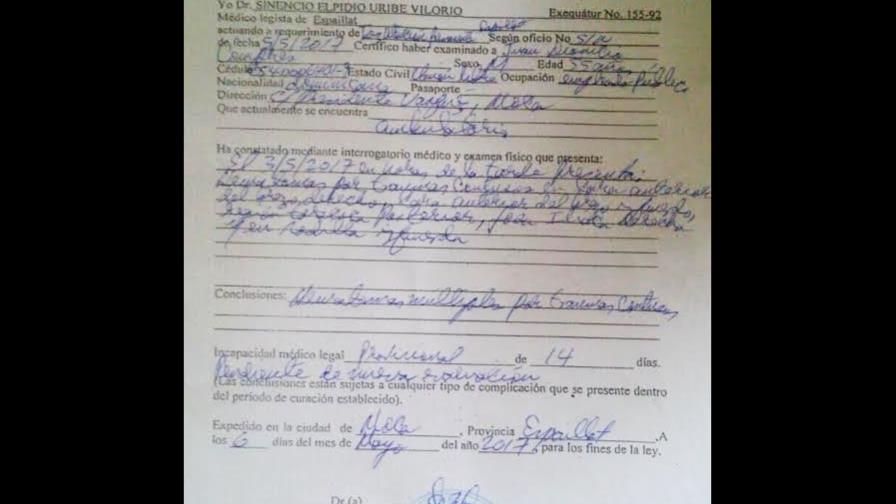 Yo Dr. SINENCIO ELPIDIO URIBE VILORIO Exequátur No. 155-92
Médico legista de Espaillat
actuando a requerimiento de Según oficio No S/n
de fecha 5/5/2017 Certifico haber examinado a Juan
Sexo M Edad 55 años
Cédula Estado Civil Unión Libre Ocupación empleado Público
Nacionalidad dominicana Pasaporte
Dirección C/ Presidente Vásquez, Moca
Que actualmente se encuentra
ambulatorio
Ha constatado mediante interrogatorio médico y examen físico que presenta:
El 3/5/2017 en horas de la tarde presenta:
por traumas contusos en cara anterior
del brazo derecho, cara anterior del brazo izquierdo,
región Posterior, derecha
y en rodilla izquierda
Conclusiones: multiples por traumas Contusos
Incapacidad médico legal Provisional de 14 días.
Pendiente de nueva evaluación
(Las conclusiones están sujetas a cualquier tipo de complicación que se presente dentro
del período de curación establecido).
Expedido en la ciudad de Moca, Provincia Espaillat, A
los 6 días del mes de Mayo del año 2017, para los fines de la ley.
Dr.(a)